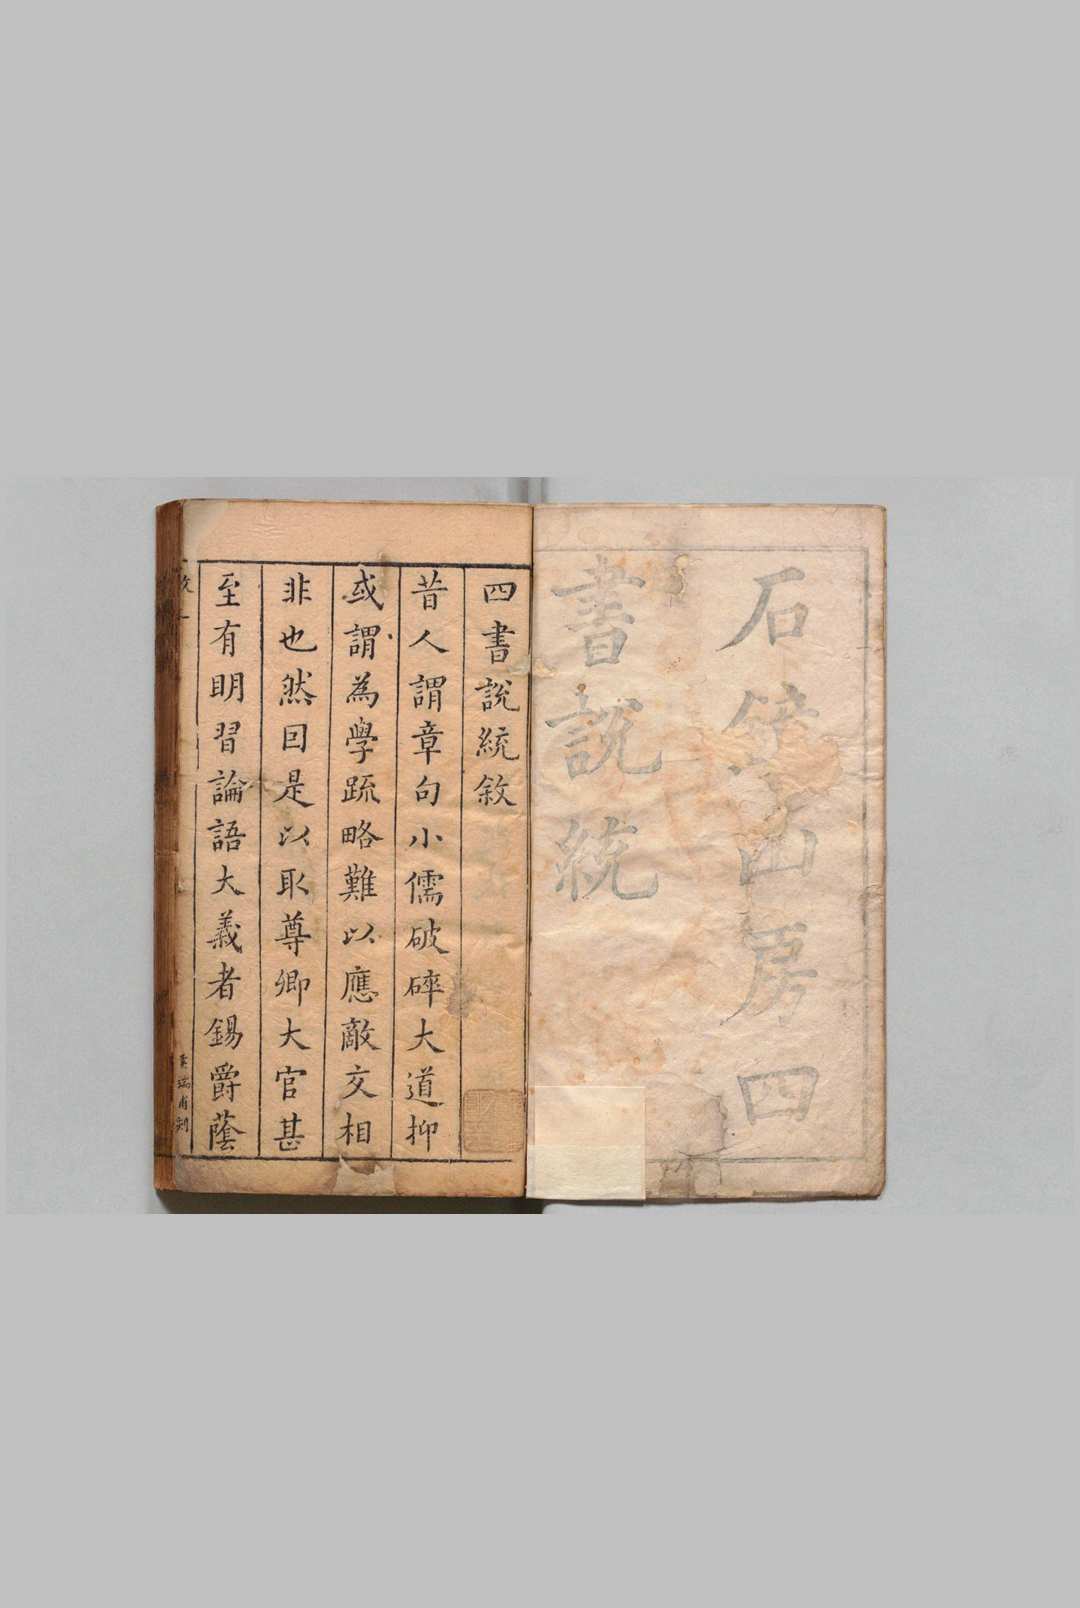 石鏡山房四
書說統
四書說統敘
昔人謂章句小儒破碎大道抑
或謂為學疏略難以應敵交相
非也然囙是以取尊卿大官甚
至有明習論語大義者錫爵蔭